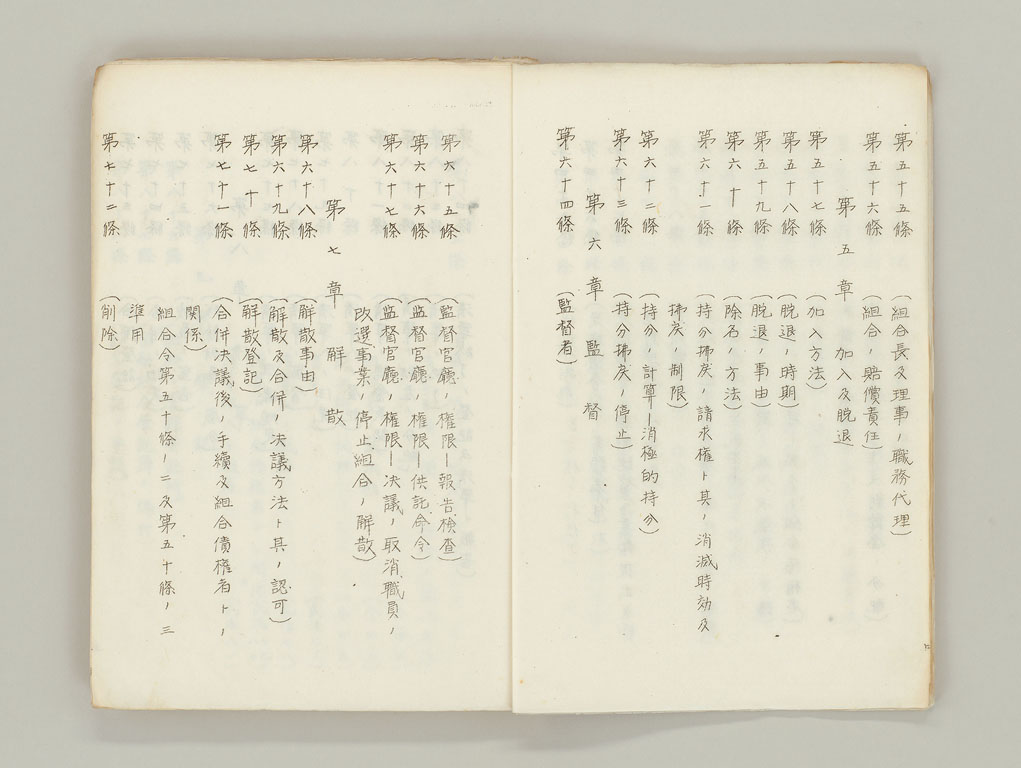 第五十五條（組合長及理事ノ職務代理）
第五十六條（組合ノ賠償責任）
第五章 加入及脱退
第五十七條（加入方法）
第五十八條（脱退ノ時期）
第五十九條（脱退ノ事由）
第六十條（除名ノ方法）
第六十一條（持分拂戻ノ請求權ト其ノ消滅時効及
拂戻ノ制限）
第六十二條（持分ノ計算―消極的持分）
第六十三條（持分拂戻ノ停止）
第六章 監督
第六十四條（監督者）
第六十五條（監督官廳ノ權限―報告檢查）
第六十六條（監督官廳ノ權限―供託命令）
第六十七條（監督官廳ノ權限―決議ノ取消職員ノ
改選事業ノ停止組合ノ解散）
第七章 解散
第六十八條（解散事由）
第六十九條（解散及合併ノ決議方法ト其ノ認可）
第七十條（解散登記）
第七十一條（合併決議後ノ手續及組合債權者トノ
關係）
組合令第五十條ノ二及第五十條ノ三
準用
第七十二條（削除）